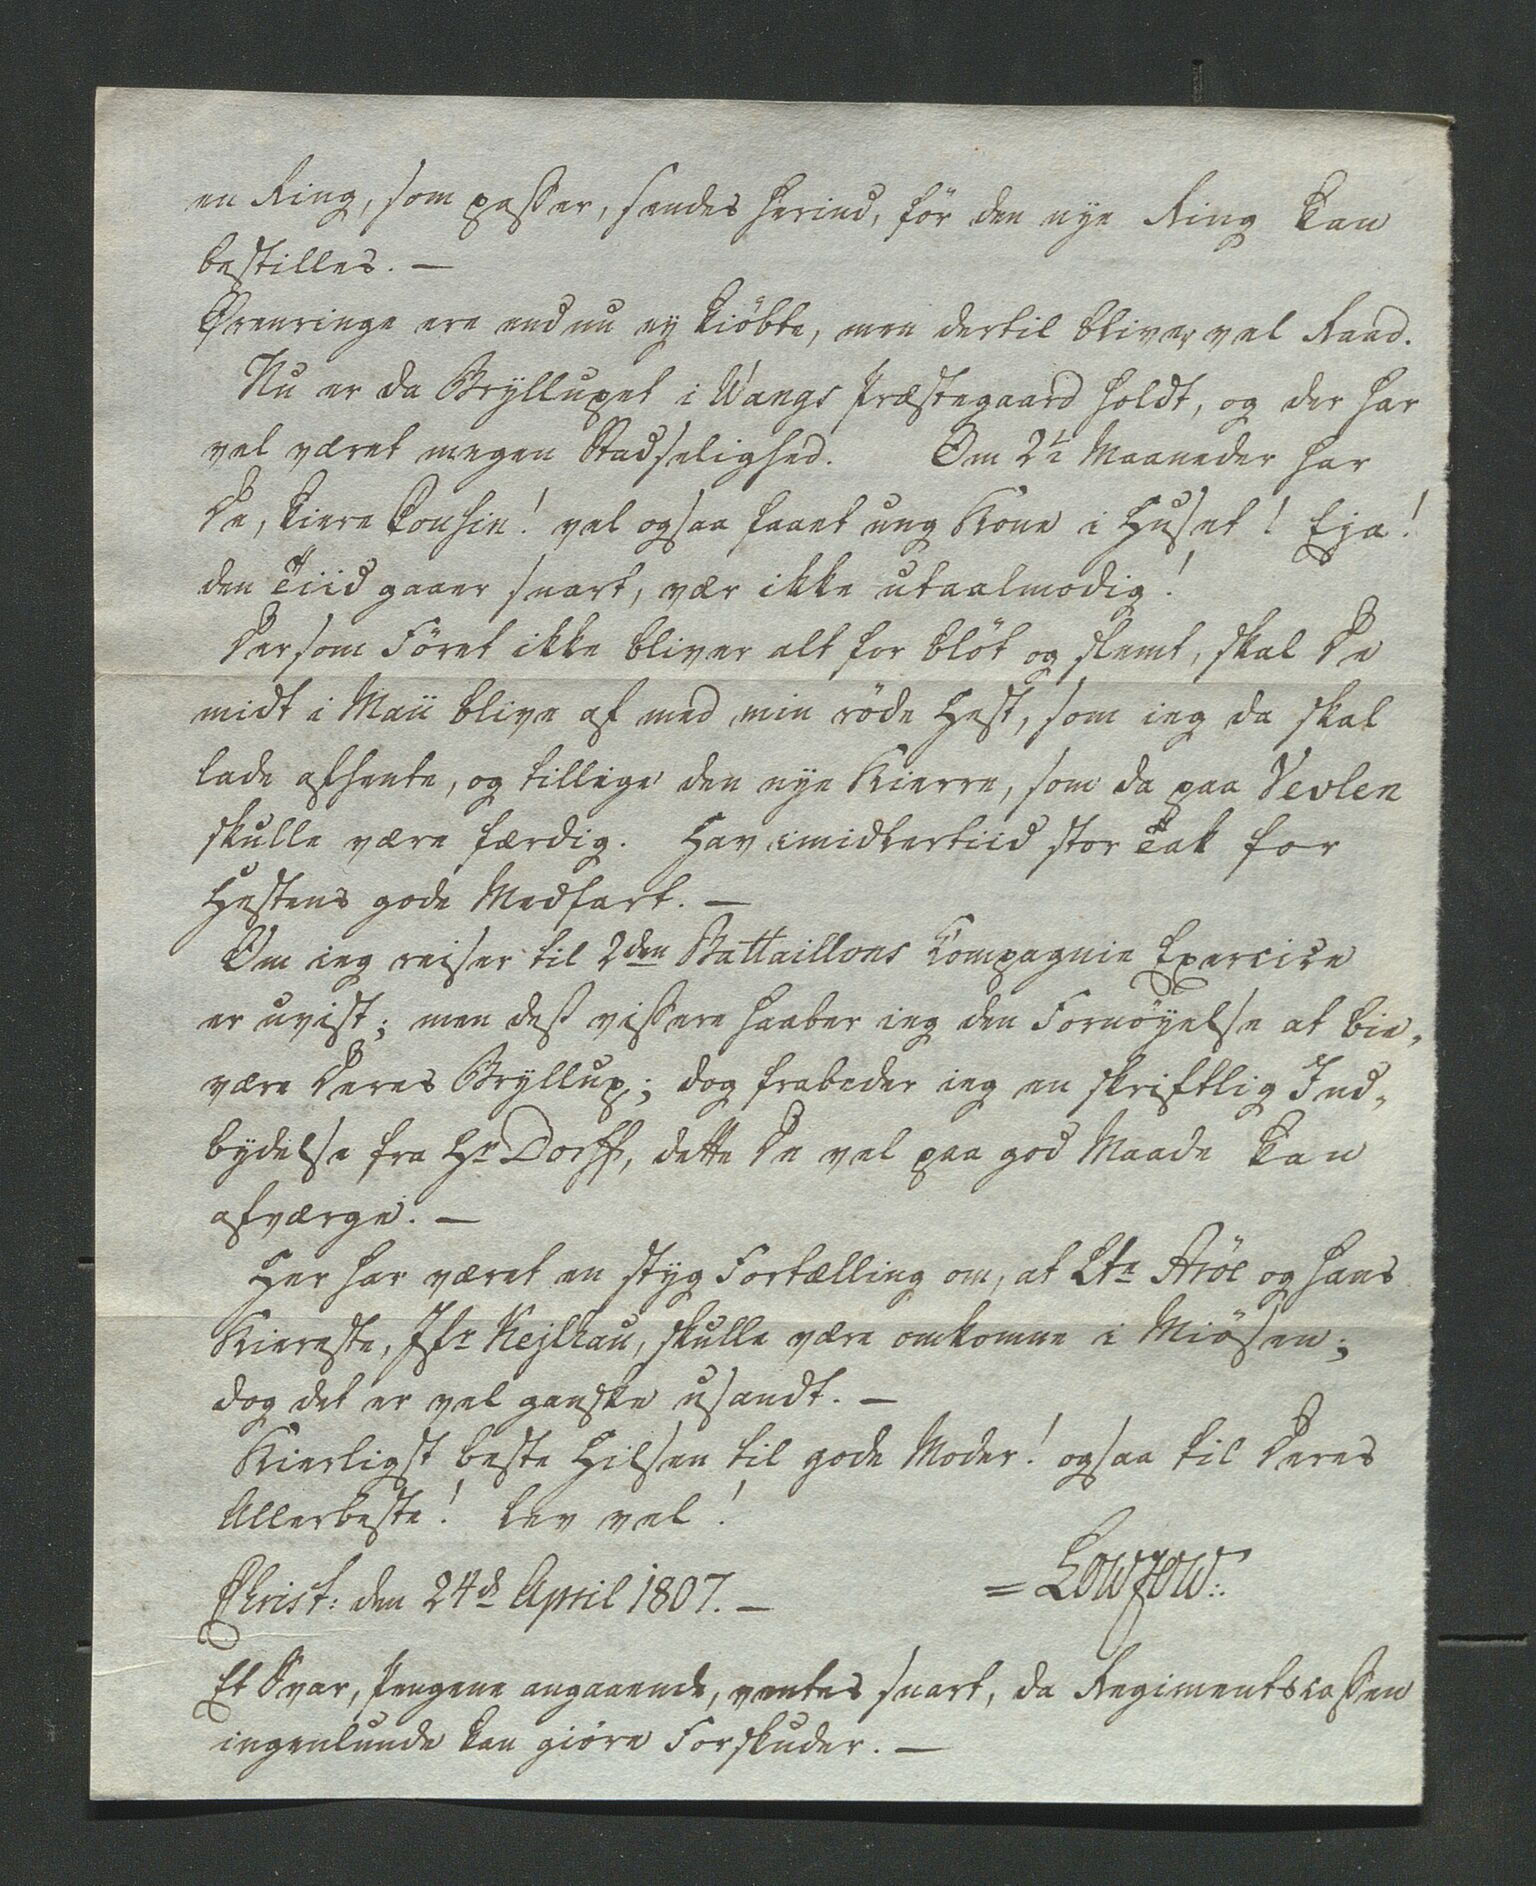 en Ring, som passer, sendes herind, för den nye Ring kan
bestilles. —
Ørenringe ere endnu ey kiöbte, men dertil bliver vel Raad.
Nu er da Bryllupet i Wangs Præstegaard holdt, og der har
vel været megen Stadselighed. Om 2½ Maaneder har
De, kiere Cousin! vel ogsaa faaet ung Kone i Huset! Eja!
den Tiid gaaer snart, vær ikke utaalmodig!
Dersom Föret ikke bliver alt for blöt og slemt, skal De
midt i Maii blive af med min röde Hest, som ieg da skal
lade afhente, og tillige den nye Kierre, som da paa Vevlen
skulle være færdig. Hav imidlertiid stor Tak for
Hestens gode Medfart. —
Om ieg reiser til 2den Battaillons Compagnie Exercice
er uvist; men dess vissere haaber ieg den Fornöyelse at bie-
være Deres Bryllup; dog frabeder ieg en skriftlig Ind-
bydelse fra Hr Dorff, dette De vel paa god Maade kan
afværge. —
Her har været en styg Fortælling om, at Ltn Aröe og hans
Kiereste, Jfr Kejlhau, skulle være omkomne i Miösen;
dog det er vel ganske usandt. —
Kierligst beste Hilsen til gode Moder! ogsaa til Deres
Allerbeste! Lev vel!
Christ: den 24d April 1807. — = Lowzow:
Et Svar, Pengene angaaende, ventes snart, da Regimentscassen
ingenlunde kan giöre Forskuder. —